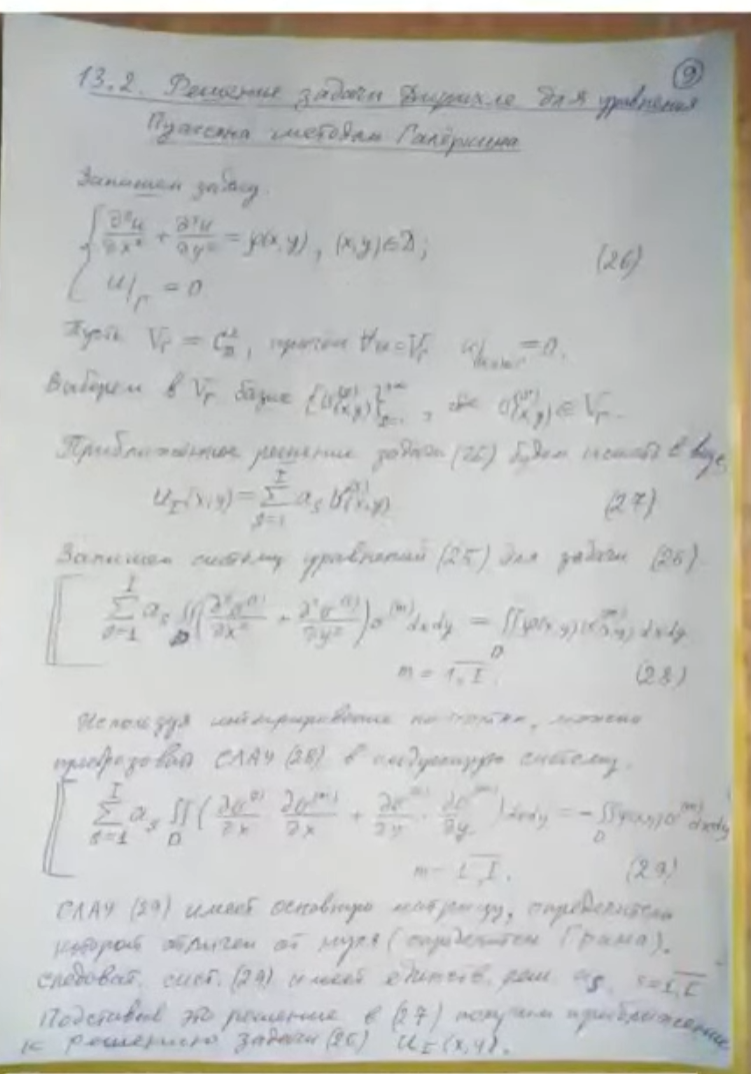 9
13.2. Решение задачи Дирихле для уравнения
Пуассона методом Галёркина
Запишем задачу.
∂²u/∂x² + ∂²u/∂y² = φ(x,y), (x,y)∈D;
u|_Γ = 0 (26)
Пусть V_Γ = C²_D, причём ∀u∈V_Γ u| = 0.
Выберем в V_Γ базис {v^(s)(x,y)}_{s=1}^∞, где v^(s)(x,y) ∈ V_Γ.
Приближённое решение задачи (26) будем искать в виде
u_I(x,y) = Σ_{s=1}^I a_s v^(s)(x,y) (27)
Запишем систему уравнений (25) для задачи (26)
Σ_{s=1}^I a_s ∬_D (∂²v^(s)/∂x² + ∂²v^(s)/∂y²) v^(m) dxdy = ∬_D φ(x,y) v^(m)(x,y) dxdy
m = 1,I. (28)
Используя интегрирование по частям, можно
преобразовать СЛАУ (28) в следующую систему.
Σ_{s=1}^I a_s ∬_D (∂v^(s)/∂x ∂v^(m)/∂x + ∂v^(s)/∂y · ∂v^(m)/∂y) dxdy = -∬_D φ(x,y) v^(m) dxdy
m = 1,I. (29)
СЛАУ (29) имеет основную матрицу, определитель
которой отличен от нуля (определитель Грама).
следоват. сист. (29) имеет единств. реш. a_s, s=1,I
Подставив это решение в (27) получим приближение
к решению задачи (26) u_I(x,y).